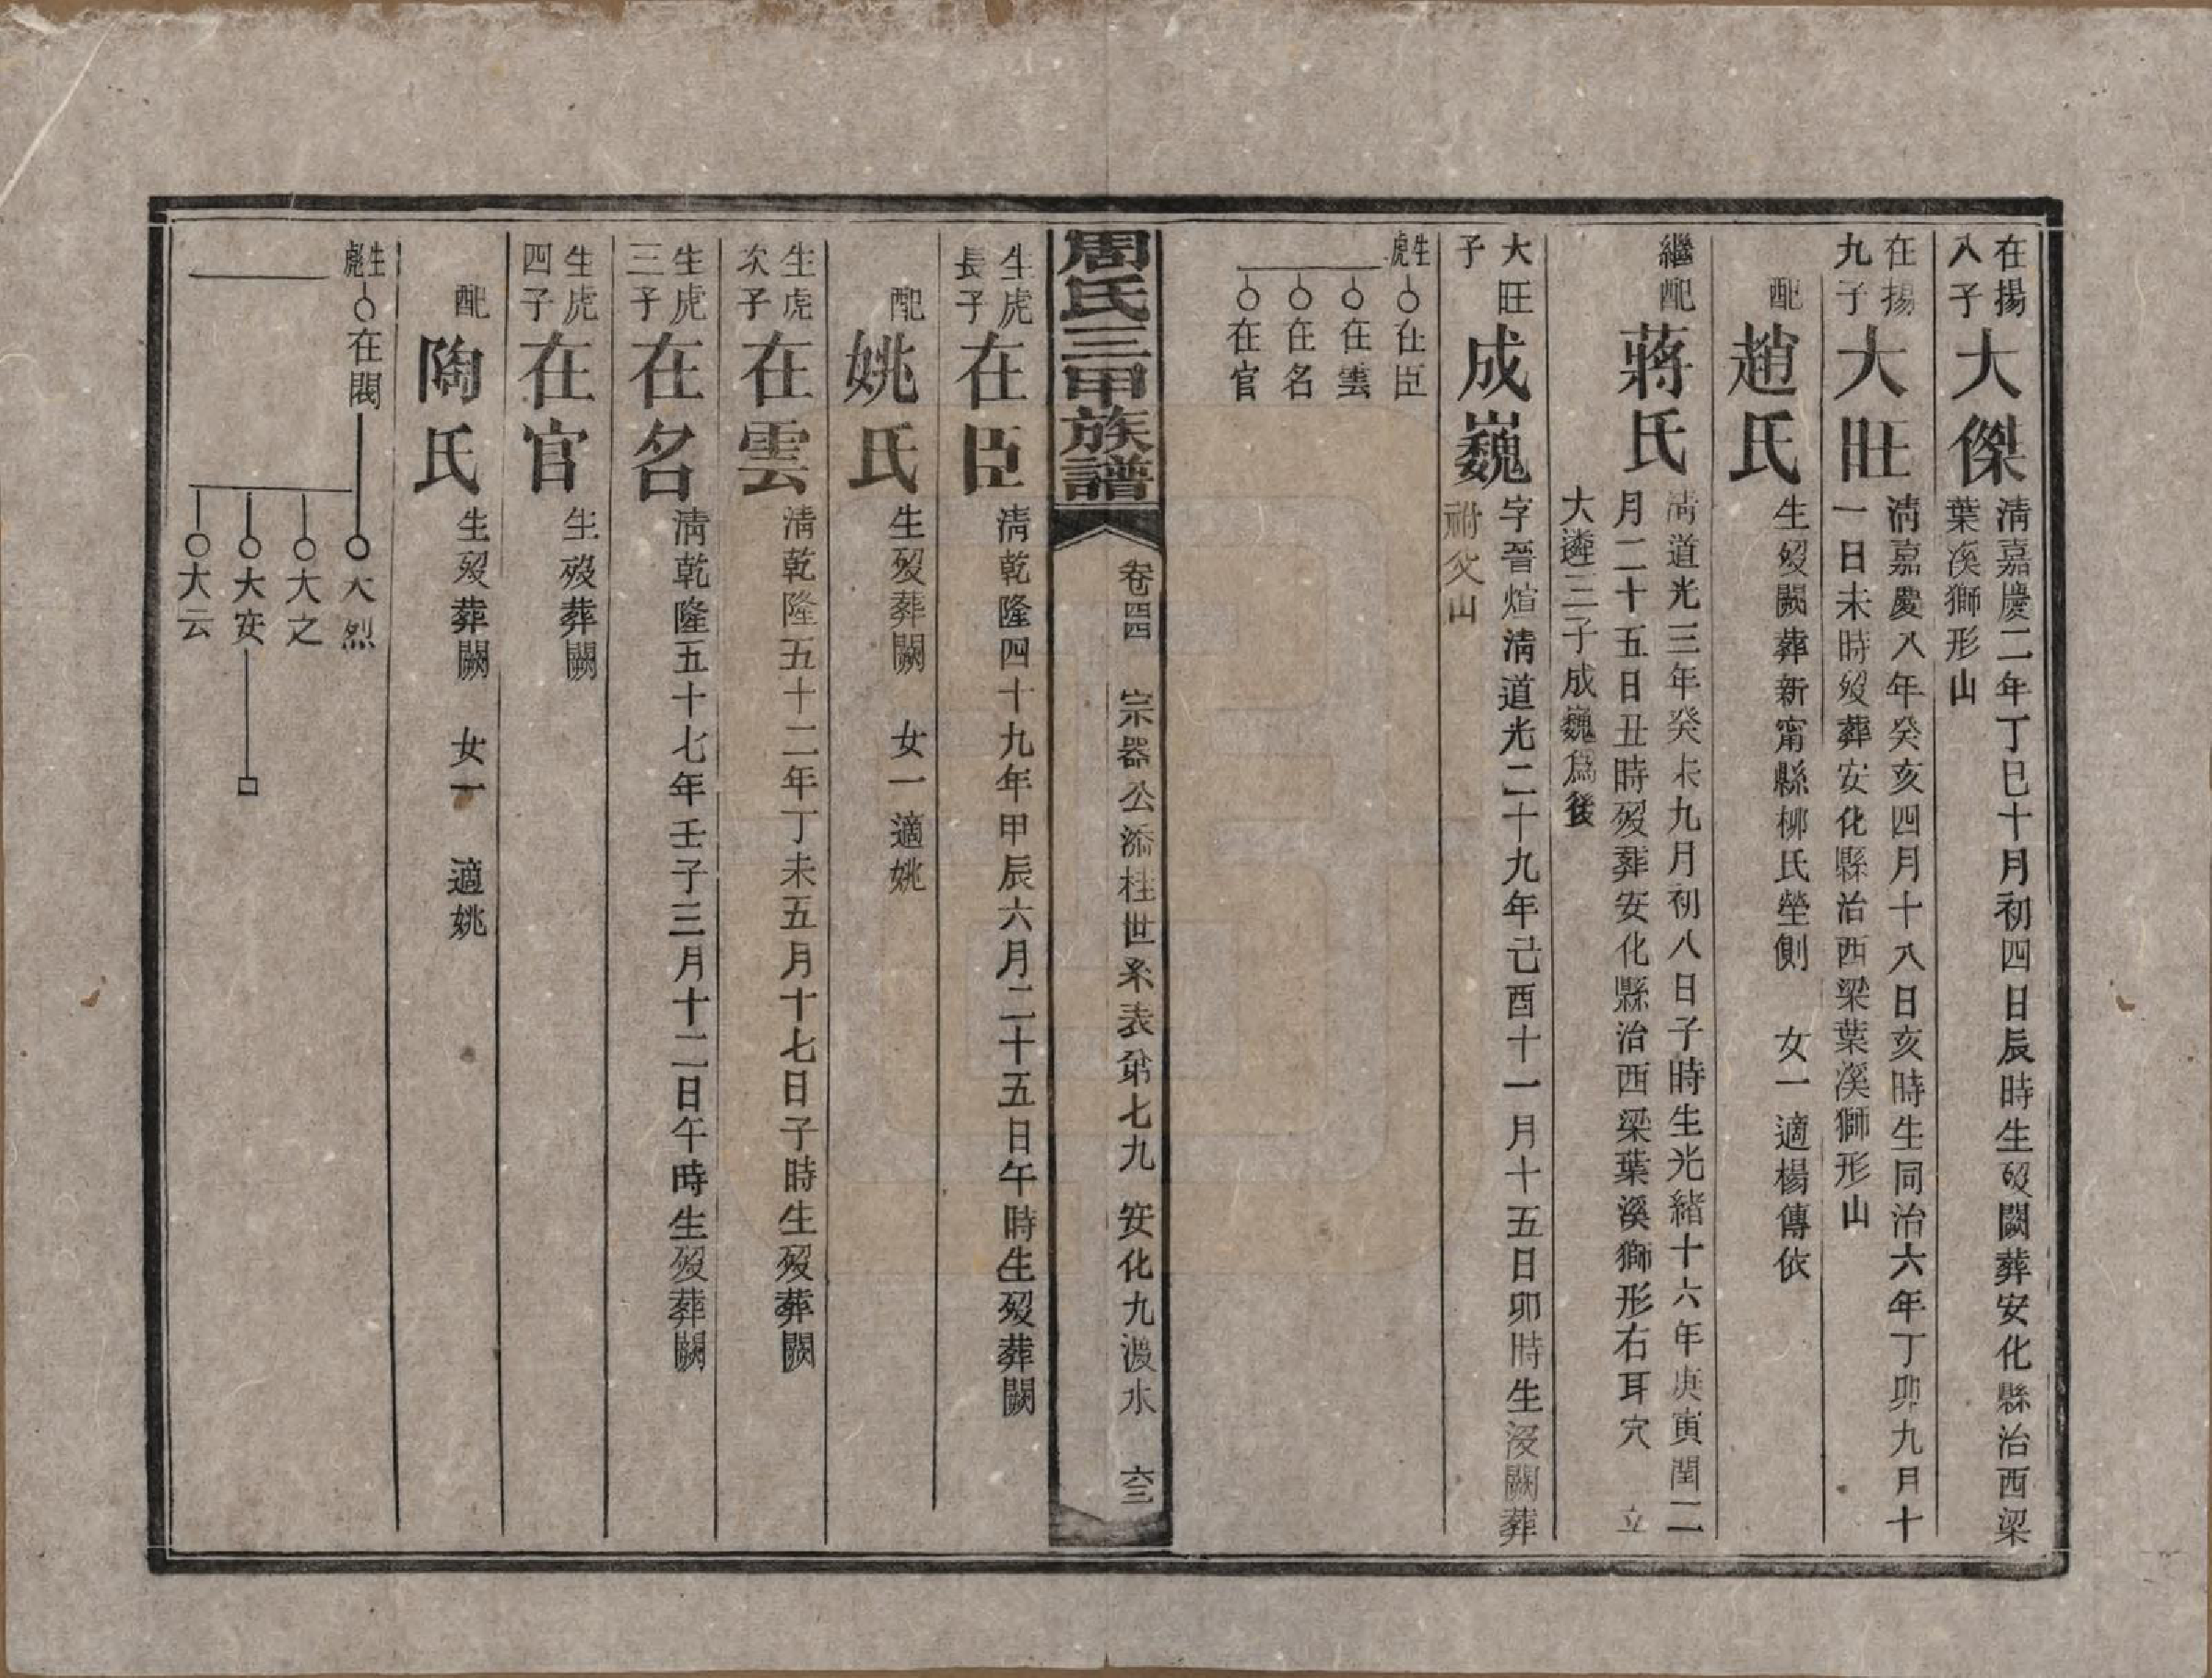 在揚八子 大傑 清嘉慶二年丁巳十月初四日辰時生歿闕葬安化縣治西梁
葉溪獅形山
在揚九子 大旺 清嘉慶八年癸亥四月十八日亥時生同治六年丁卯九月十
一日未時歿葬安化縣治西梁葉溪獅形山
配 趙氏 生歿闕葬新甯縣柳氏塋側 女一適楊傳依
繼配 蔣氏 清道光三年癸未九月初八日子時生光緒十六年庚寅閏二
月二十五日丑時歿葬安化縣治西梁葉溪獅形右耳穴 立
大遴三子成巍爲後
大旺子 成巍 字晉煊清道光二十九年己酉十一月十五日卯時生沒闕葬
祔父山
生虎 在臣
在雲
在名
在官
周氏三甲族譜 卷四四 宗器公添桂世系表第七九 安化九渡水 六三
生虎長子 在臣 清乾隆四十九年甲辰六月二十五日午時生歿葬闕
配 姚氏 生歿葬闕 女一適姚
生虎次子 在雲 清乾隆五十二年丁未五月十七日子時生歿葬闕
生虎三子 在名 清乾隆五十七年壬子三月十二日午時生歿葬闕
生虎四子 在官 生歿葬闕
配 陶氏 生歿葬闕 女一 適姚
生彪 在閣 大烈
大之
大安
大云